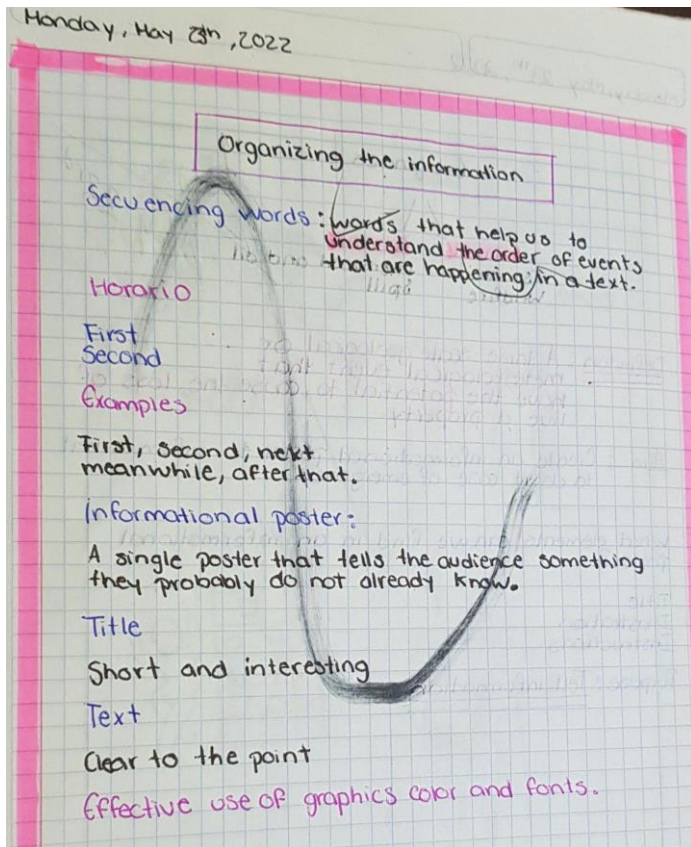 Monday, May , 2022
Organizing the information
Secuencing words: words that help us to
understand the order of events
that are happening in a text.
Horario
First
Second
Examples
First, second, next
meanwhile, after that.
Informational poster:
A single poster that tells the audience something
they probably do not already know.
Title
Short and interesting
Text
Clear to the point
Effective use of graphics color and fonts.